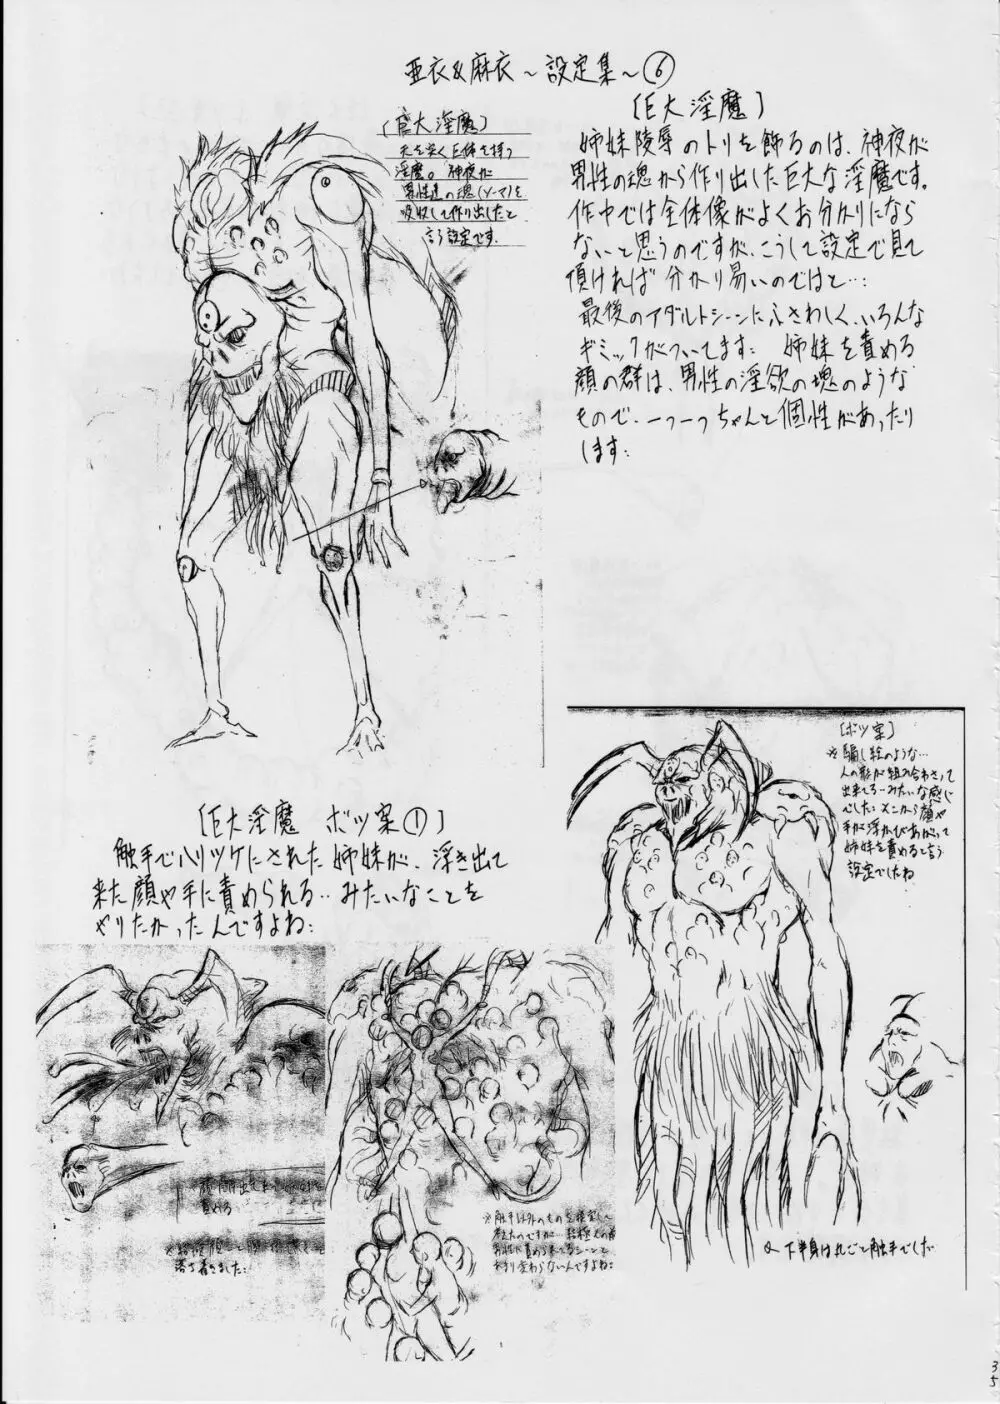 亜衣&麻衣～設定集～⑥
〔巨大淫魔〕
姉妹陵辱のトリを飾るのは、神夜が
男性の魂から作り出した巨大な淫魔です。
作中では全体像がよくお分かりになら
ないと思うのですが、こうして設定で見て
頂ければ分かり易いのではと…:
最後のアダルトシーンにふさわしく、いろんな
ギミックがついてます: 姉妹を責める
顔の群は、男性の淫欲の塊のような
もので、一つ一つちゃんと個性があったり
します:
〔巨大淫魔〕
天を突く巨体を持つ
淫魔。神夜が
男性達の魂(ソーマ)を
吸収して作り出したと
言う設定です.
〔巨大淫魔 ボツ案①〕
触手でハリツケにされた姉妹が、浮き出て
来た顔や手に責められる‥みたいなことを
やりたかったんですよね:
〔ボツ案〕
※騙し絵のような…
人の形が組み合わさって
出来てる…みたいな感じ
でした: そこから顔や
手が浮かびあがって
姉妹を責めると言う
設定でしたね
下半身は丸ごと触手でした
責める
落ち着きました:
※触手以外のもの
考えたのですが
あまり変わらないんですよね:
35